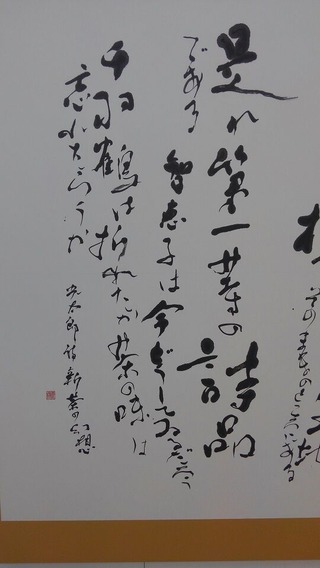 のところにある
是れ第一等の詩品
である
智恵子は今どうしてゐるだらう
千羽鶴は折れたが茶の味は
忘れたらうか
光太郎詩 新茶の幻想